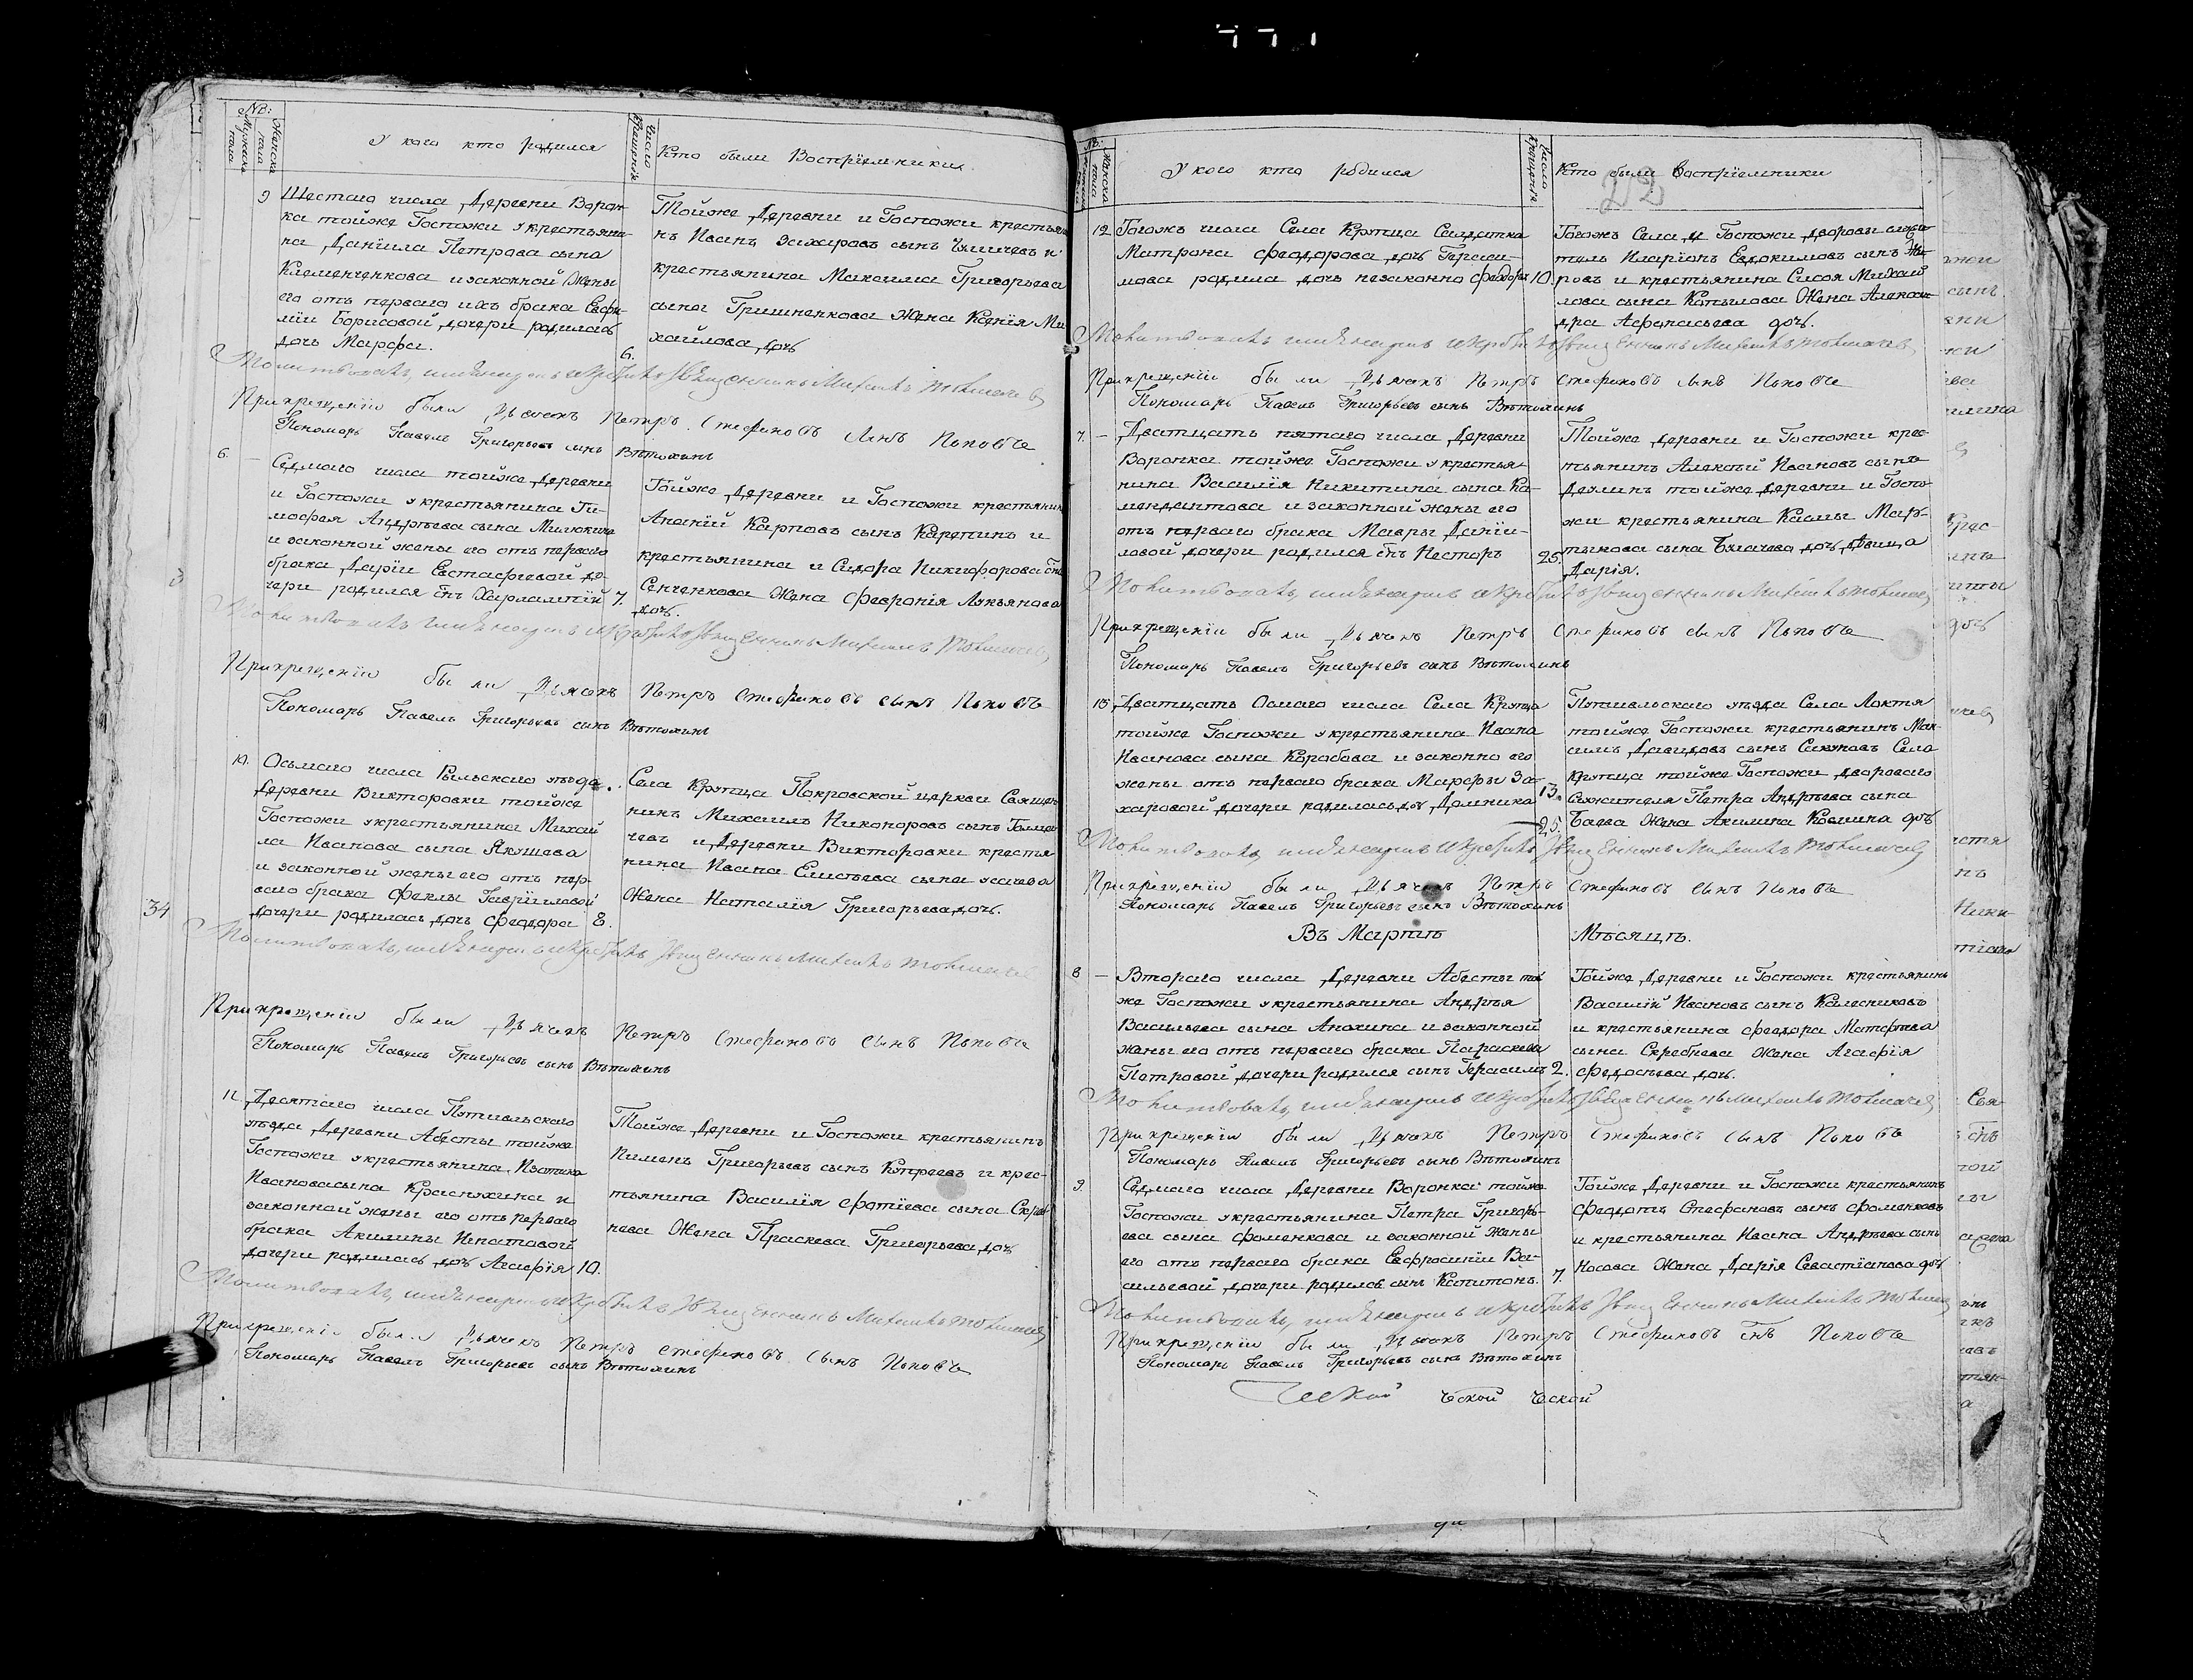 №:
Мужска пола
Женска пола
У кого кто родился
Число Крещенія
Кто были Воспріемники
9 Шестаго числа Деревни Ворон-
ка тойже Госпожи у крестьяни-
на Даніила Петрова сына
Клеменченкова и законной Жены
его отъ перваго ихъ брака Евфи-
міи Борисовой дочери родилась
дочь Марфа. 6.
Тойже Деревни и Госпожи крестьяни
нъ Иванъ Захаровъ сынъ и
крестьянина Максима Григорьева
сына Гришненкова Жена Ксенія Ми
хайлова дочь
Молитвовалъ, имя нарекъ и крестилъ Священникъ Михаилъ Толмачевъ
При крещеніи были Дьячекъ Петръ Стефановъ сынъ Поповъ
Пономарь Павелъ Григорьевъ сынъ Ветохинъ
6. — Седмаго числа тойже Деревни
и Госпожи у крестьянина Ти-
мофея Андреева сына Милюкина
и законной жены его отъ перваго
брака Даріи Евстафіевой до-
чери родился снъ Харлампій 7.
Тойже Деревни и Госпожи крестянин
Ананій Карповъ сынъ Карепинъ и
крестьянина и Сидора Никифорова сна
Сенченкова Жена Февронія Лукьянова
дочь.
Молитвовалъ имя нарекъ и крестилъ Священникъ Михаилъ Толмачевъ
При крещеніи были Дьячекъ Петръ Стефановъ сынъ Поповъ
Пономарь Павелъ Григорьевъ сынъ Ветохинъ
10. Осьмаго числа Рыльскаго уезда
Деревни Викторовки тойже
Госпожи у крестьянина Михай
ла Иванова сына Якушева
и законной жены его отъ пер-
ваго брака Феклы Гавриловой
дочери родилась дочь Феодора 8.
Села Крупца Покровской церкви Священ
никъ Михаилъ Никоноровъ сынъ Толма
чевъ и Деревни Викторовки крестя
нина Ивана Елисеева сына
Жена Наталія Григорьева дочь.
Молитвовалъ, имя нарекъ и крестилъ Священникъ Михаилъ Толмачев
При крещеніи были Дьячекъ Петръ Стефановъ сынъ Поповъ
Пономарь Павелъ Григорьевъ сынъ Ветохинъ
34
11. Десятаго числа Путивльскаго
уезда Деревни Абесты тойже
Госпожи у крестьянина
Иванова сына Красняхина и
законной жены его отъ перваго
брака Акилины Ипатовой
дочери родилась дочь Агафія 10.
Тойже Деревни и Госпожи крестьянинъ
Пименъ Григорьевъ сынъ Купреевъ и крес-
тьянина Василія Фотіева сына Скреб
нева Жена Праскева Григорьева дочь
Молитвовалъ, имя нарекъ и крестилъ Священникъ Михаилъ Толмачевъ
При крещеніи были Дьячекъ Петръ Стефановъ сынъ Поповъ
Пономарь Павелъ Григорьевъ сынъ Ветохинъ
22
№.
У кого кто родился
Число Крещенія
Кто были Воспріемники
12 Тогожъ числа Села Крупца Салдатка
Матрона Феодорова дочь Гераси-
мова родила дочь незаконно Феодору 10.
Тогожъ Села и Госпожи дворовы служи
тель Иларіонъ Евдокимовъ сынъ
ровъ и крестьянина Сисоя Михай
лова сына Копылова Жена Алексан
дра Афанасьева дочь.
Молитвовалъ имя нарекъ и крестилъ Священникъ Михаилъ Толмачевъ
При крещеніи были Дьячекъ Петръ Стефановъ сынъ Поповъ
Пономарь Павелъ Григорьевъ сынъ Ветохинъ
7. — Дватцать пятаго числа Деревни
Воронка тойже Госпожи у крестья-
нина Василія Никитина сына Ка-
мендантова и законной жены его
отъ перваго брака Мавры Даніи-
ловой дочери родился снъ Несторъ 25.
Тойже деревни и Госпожи крес-
тьянинъ Алексей Ивановъ сынъ
Деминъ тойже деревни и Госпо-
жи крестьянина Космы Мар-
тынова сына дочь девица
Дарія.
Молитвовалъ, имя нарекъ и крестилъ Священникъ Михаилъ Толмачевъ
При крещеніи были Дьячекъ Петръ Стефановъ сынъ Поповъ
Пономарь Павелъ Григорьевъ сынъ Ветохинъ
13 Дватцать Осмаго числа Села Крупца
тойже Госпожи у крестьянина Ивана
Иванова сына Коробова и законно его
жены отъ перваго брака Марфы За-
харовой дочери родилась доч Домника 13.
25.
Путивльскаго уезда Села Локтя
тойже Госпожи крестьянинъ Мак-
симъ Давидовъ сынъ Села
Крупца тойже Госпожи двороваго
Служителя Петра Андреева сына
Баева Жена Акилина Косьмина дочь
Молитвовалъ имя нарекъ и крестилъ Священникъ Михаилъ Толмачевъ
При крещеніи были Дьячекъ Петръ Стефановъ сынъ Поповъ
Пономарь Павелъ Григорьевъ сынъ Ветохинъ
Въ Марте Месяце.
8 — Втораго числа Деревни Абесты той
же Госпожи у крестьянина Андрея
Васильева сына Анохина и законной
жены его отъ перваго брака Параскевы
Петровой дочери родился сынъ Герасимъ 2.
Тойже Деревни и Госпожи крестьянинъ
Василій Ивановъ сынъ Калесниковъ
и крестьянина Феодора Матфеева
сына Скребнева Жена Агафія
Федосеева дочь.
Молитвовалъ, имя нарекъ и крестилъ Священникъ Михаилъ Толмачевъ
При крещеніи были Дьячекъ Петръ Стефановъ сынъ Поповъ
Пономарь Павелъ Григорьевъ сынъ Ветохинъ
9. Седмаго числа Деревни Воронка тойже
Госпожи у крестьянина Петра Григорь-
ева сына Фоменкова и законной Жены
его отъ перваго брака Евфросиніи Ва-
сильевой дочери родился сынъ Капитонъ. 7.
Тойже Деревни и Госпожи крестьянинъ
Феодотъ Стефановъ сынъ Фоменковъ
и крестьянина Ивана Андреева сына
Носова Жена Дарія Севастіанова дочь
Молитвовалъ, имя нарекъ и крестилъ Священникъ Михаилъ Толмачевъ
При крещеніи были Дьячекъ Петръ Стефановъ снъ Поповъ
Пономарь Павелъ Григорьевъ сынъ Ветохинъ